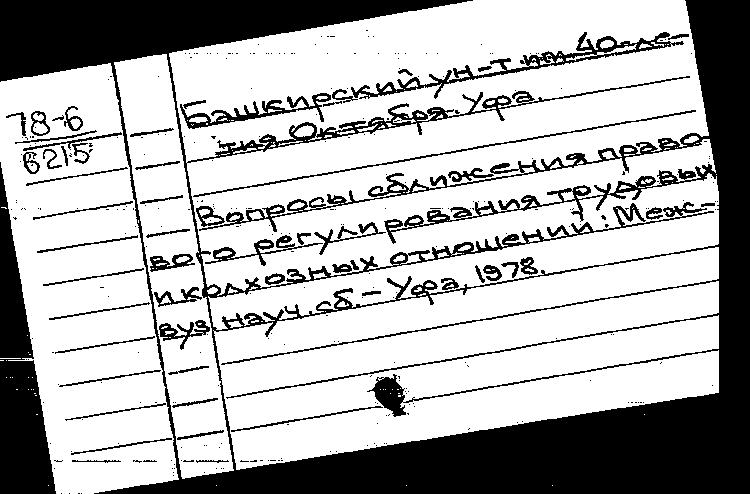 78-6
6215
Башкирский ун-т им. 40-ле-
тия Октября. Уфа.
Вопросы сближения право-
вого регулирования трудовых
и колхозных отношений: Меж-
вуз. науч. сб. – Уфа, 1978.